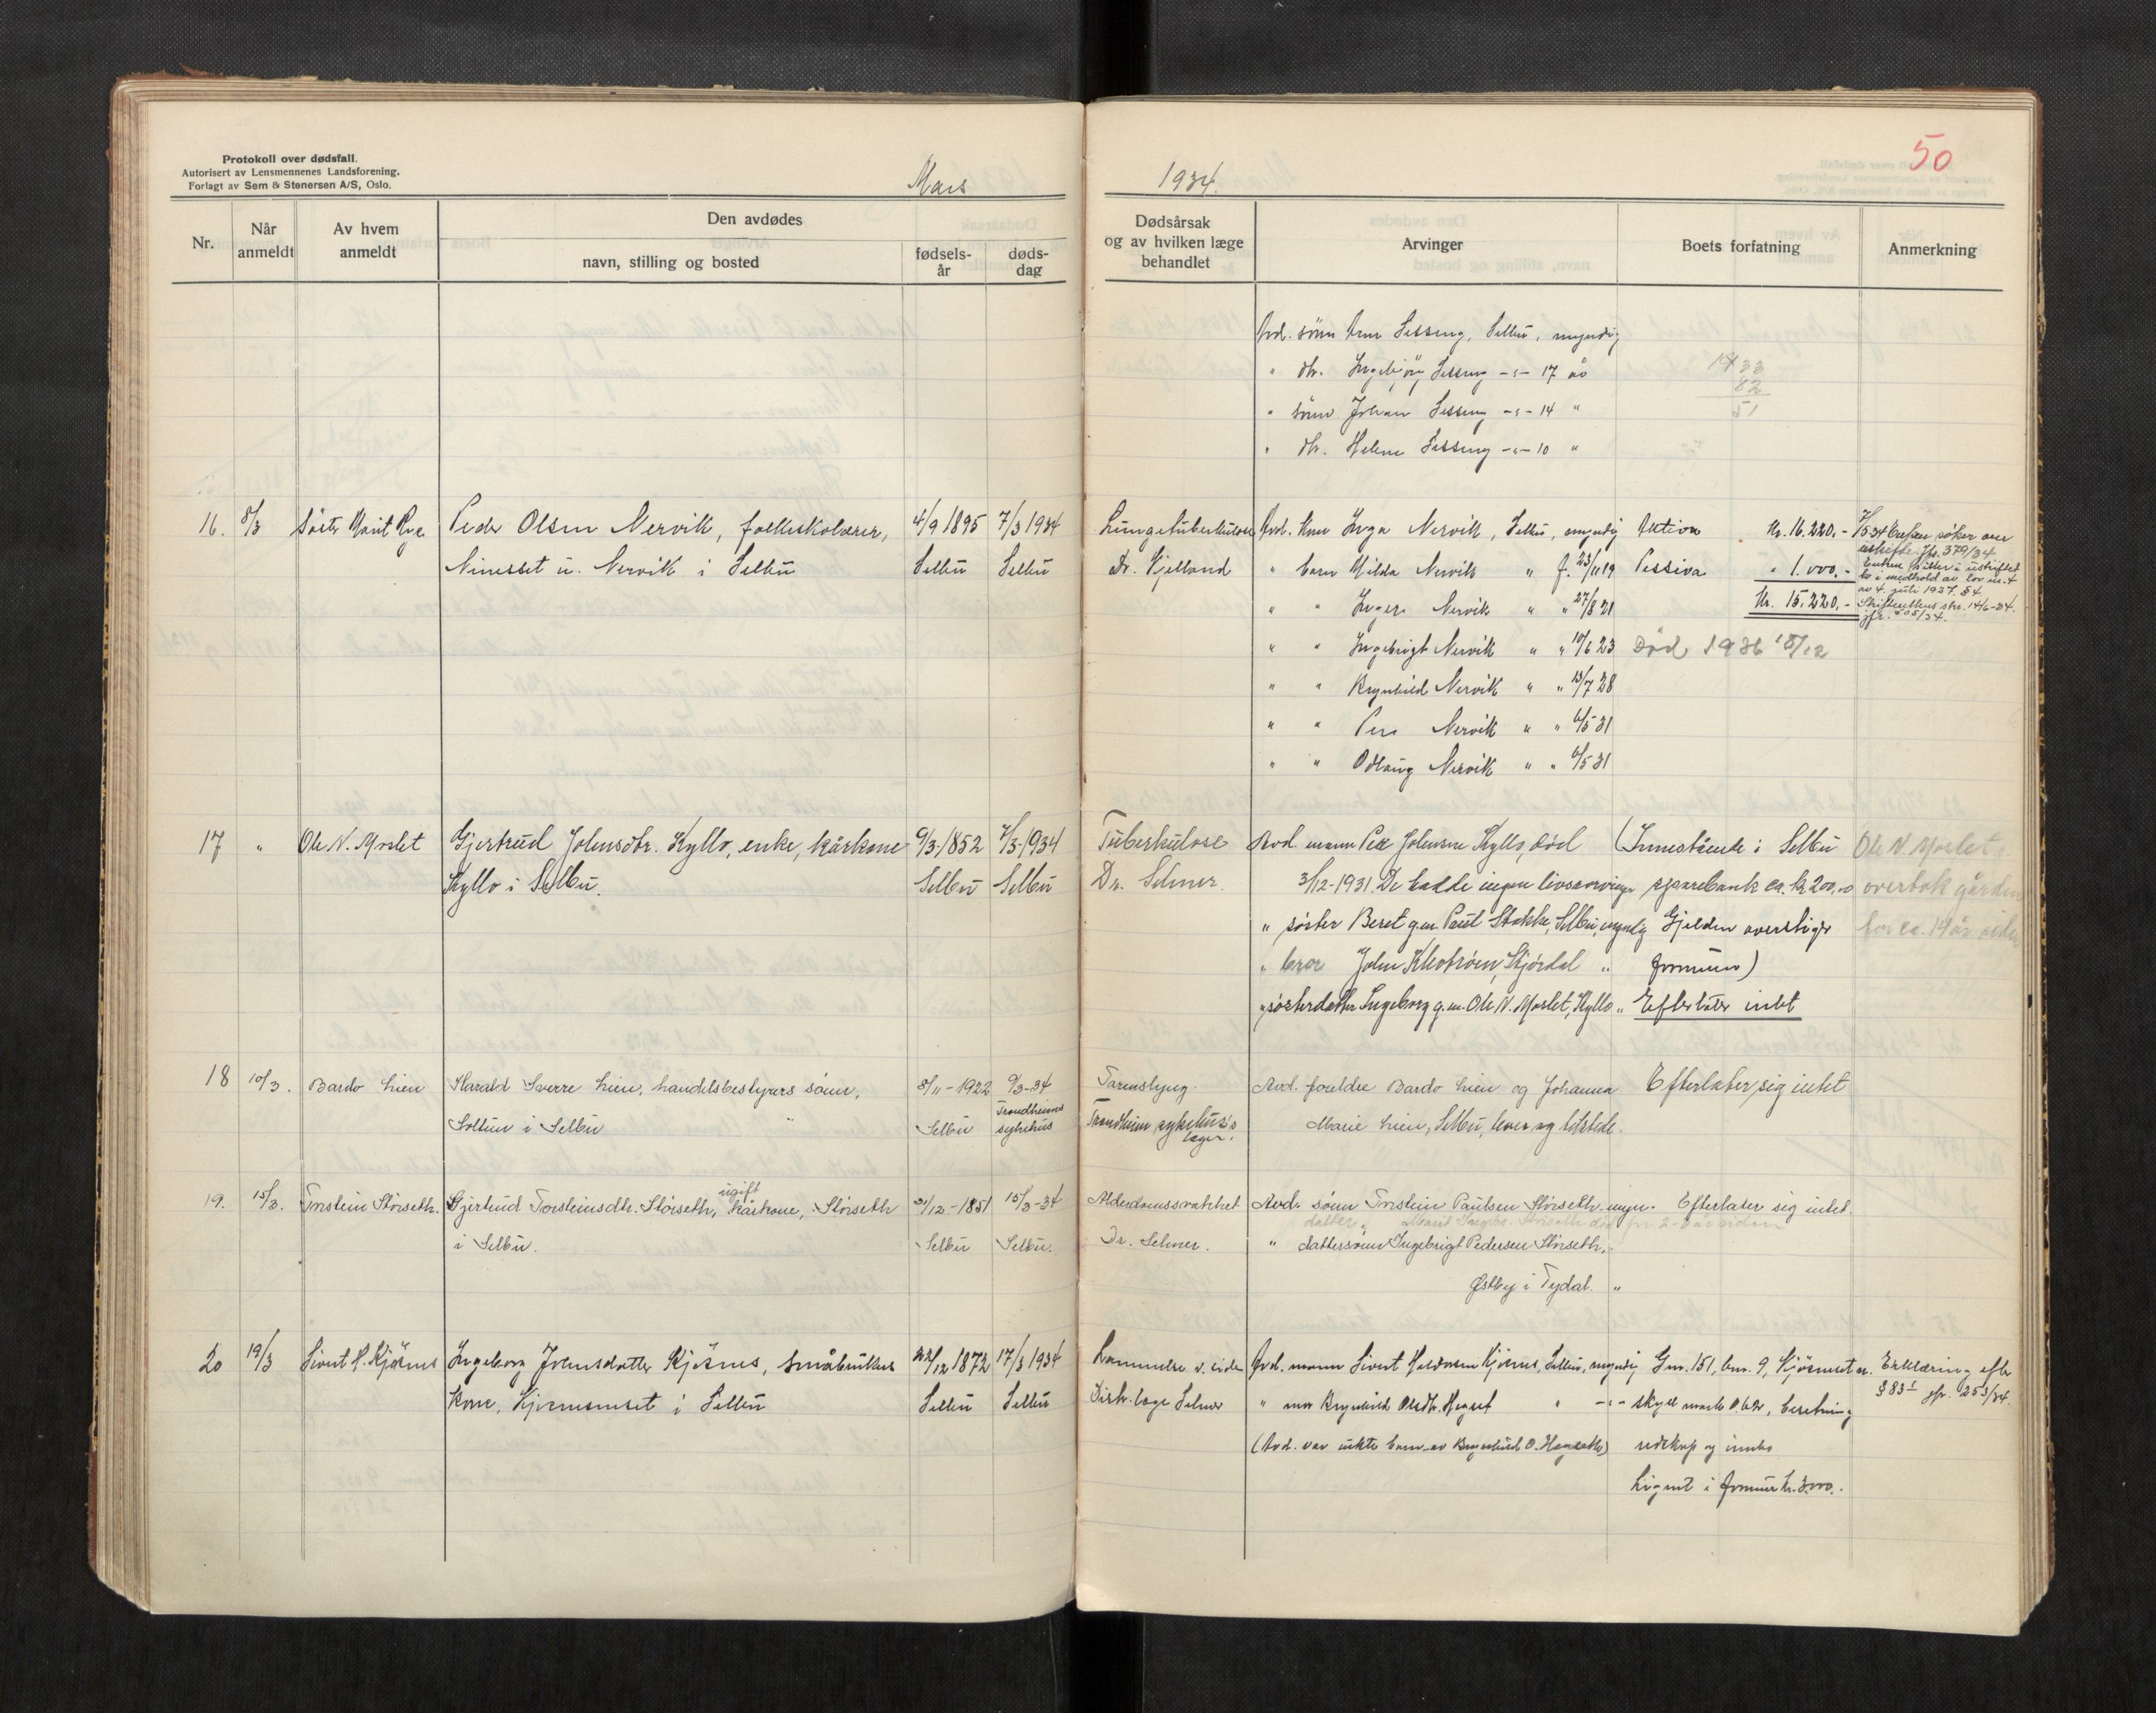 Protokoll over dødsfall.
Autorisert av Lensmennenes Landsforening.
Forlagt av Sem & Stenersen A/S, Oslo.
Mars
1934.
50
Nr.
Når anmeldt
Av hvem anmeldt
Den avdødes
navn, stilling og bosted
fødsels-år
døds-dag
Dødsårsak og av hvilken læge behandlet
Arvinger
Boets forfatning
Anmerkning
Avd. sönn Arne Sesseng, Selbu, myndig
" dtr. Ingebjörg Sesseng -"- 17 år
" sönn Johan Sesseng -"- 14 "
" dtr. Helene Sesseng -"- 10 "
1933
82
51
16. 8/3 Söster Marit
Peder Olsen Nervik, folkeskolelærer,
i Selbu
4/9 1895 7/3 1934
Selbu Selbu
Lungetuberkulose
Dr. Kjelland
Avd. kone Inga Nervik, Selbu, myndig
" barn Hilda Nervik " f. 23/11 19
" " Inger Nervik " " 27/8 21
" " Ingebrigt Nervik " " 10/6 23
" " Brynhild Nervik " " 13/7 28
" " Per Nervik " " 6/5 31
" " Odlaug Nervik " " 6/5 31
Aktiva Kr. 16.220.-
Passiva " 1.000.-
Kr. 15.220.-
Död 1936 18/12
7/5 34 Enken söker om
uskifte. Jfr. 379/34
Enken sitter i uskiftet
bo i medhold av lov nr. 4
av 4. juli 1927, § 4.
Skifterettens skr. 14/6-34.
jfr. 505/34.
17 " Ole N. Moslet
Gjertrud Johnsdtr. Kyllo, enke, kårkone
Kyllo i Selbu.
9/3-1852 7/3-1934
Selbu Selbu
Tuberkulose
Dr. Selmer.
Avd. mann Peder Johnsen Kyllo, död
3/12-1931. De hadde ingen livsarvinger
" söster Beret g.m. Paul Stokke, Selbu, myndig
" bror John Kleströen, Stjördal "
" sösterdatter Ingeborg g.m. Ole N. Moslet, Kyllo "
(Innestående i Selbu
sparebank ca. kr 200,00
Gjelden overstiger
formuen)
Efterlater intet
Ole N. Moslet
overtok gården
for ca. 19 år siden
18 10/3. Bardo Lien
Harald Sverre Lien, handelsbestyrers sönn,
i Selbu
8/11-1922 9/3-34
Selbu Trondheims sykehus
Tarmslyng.
Trondheim sykehus's
læger.
Avd. foreldre Bardo Lien og Johanna
Marie Lien, Selbu, lever og bosted.
Efterlater sig intet
19. 15/3. Torstein Störseth.
Gjertrud Torsteinsdtr. Störseth, ugift kårkone, Störseth
i Selbu.
31/12-1851 15/3-34
Selbu Selbu.
Alderdomssvakhet
Dr. Selmer.
Avd. sönn Torstein Paulsen Störseth. myn.
datter Marit Ingebr. Störseth död for 2-3 år siden
" dattersönn Ingebrigt Pedersen Störseth,
Østby i Tydal. "
Efterlater sig intet.
20 19/3 Sivert H. Kjösnes
Ingeborg Johnsdatter Kjösnes, småbrukers
kone, Kjösnesmset i Selbu
22/12 1872 17/3 1934
Selbu Selbu
Lammelse v. side
Distr. læge Selmer
Avd. mann Sivert Haldorsen Kjösnes, Selbu, myndig
" mor Brynhild Olsdtr. Hegset " -"-
(Avd. var uekte barn av Brynhild O. Hegseth)
Gnr. 151, bnr. 9, Kjösneset a.
skyld mark 0.62, besetning
redskap og innbo
Lignet i formue kr. 3.000.-
Erklæring efter
§ 83 jfr. 253/34.